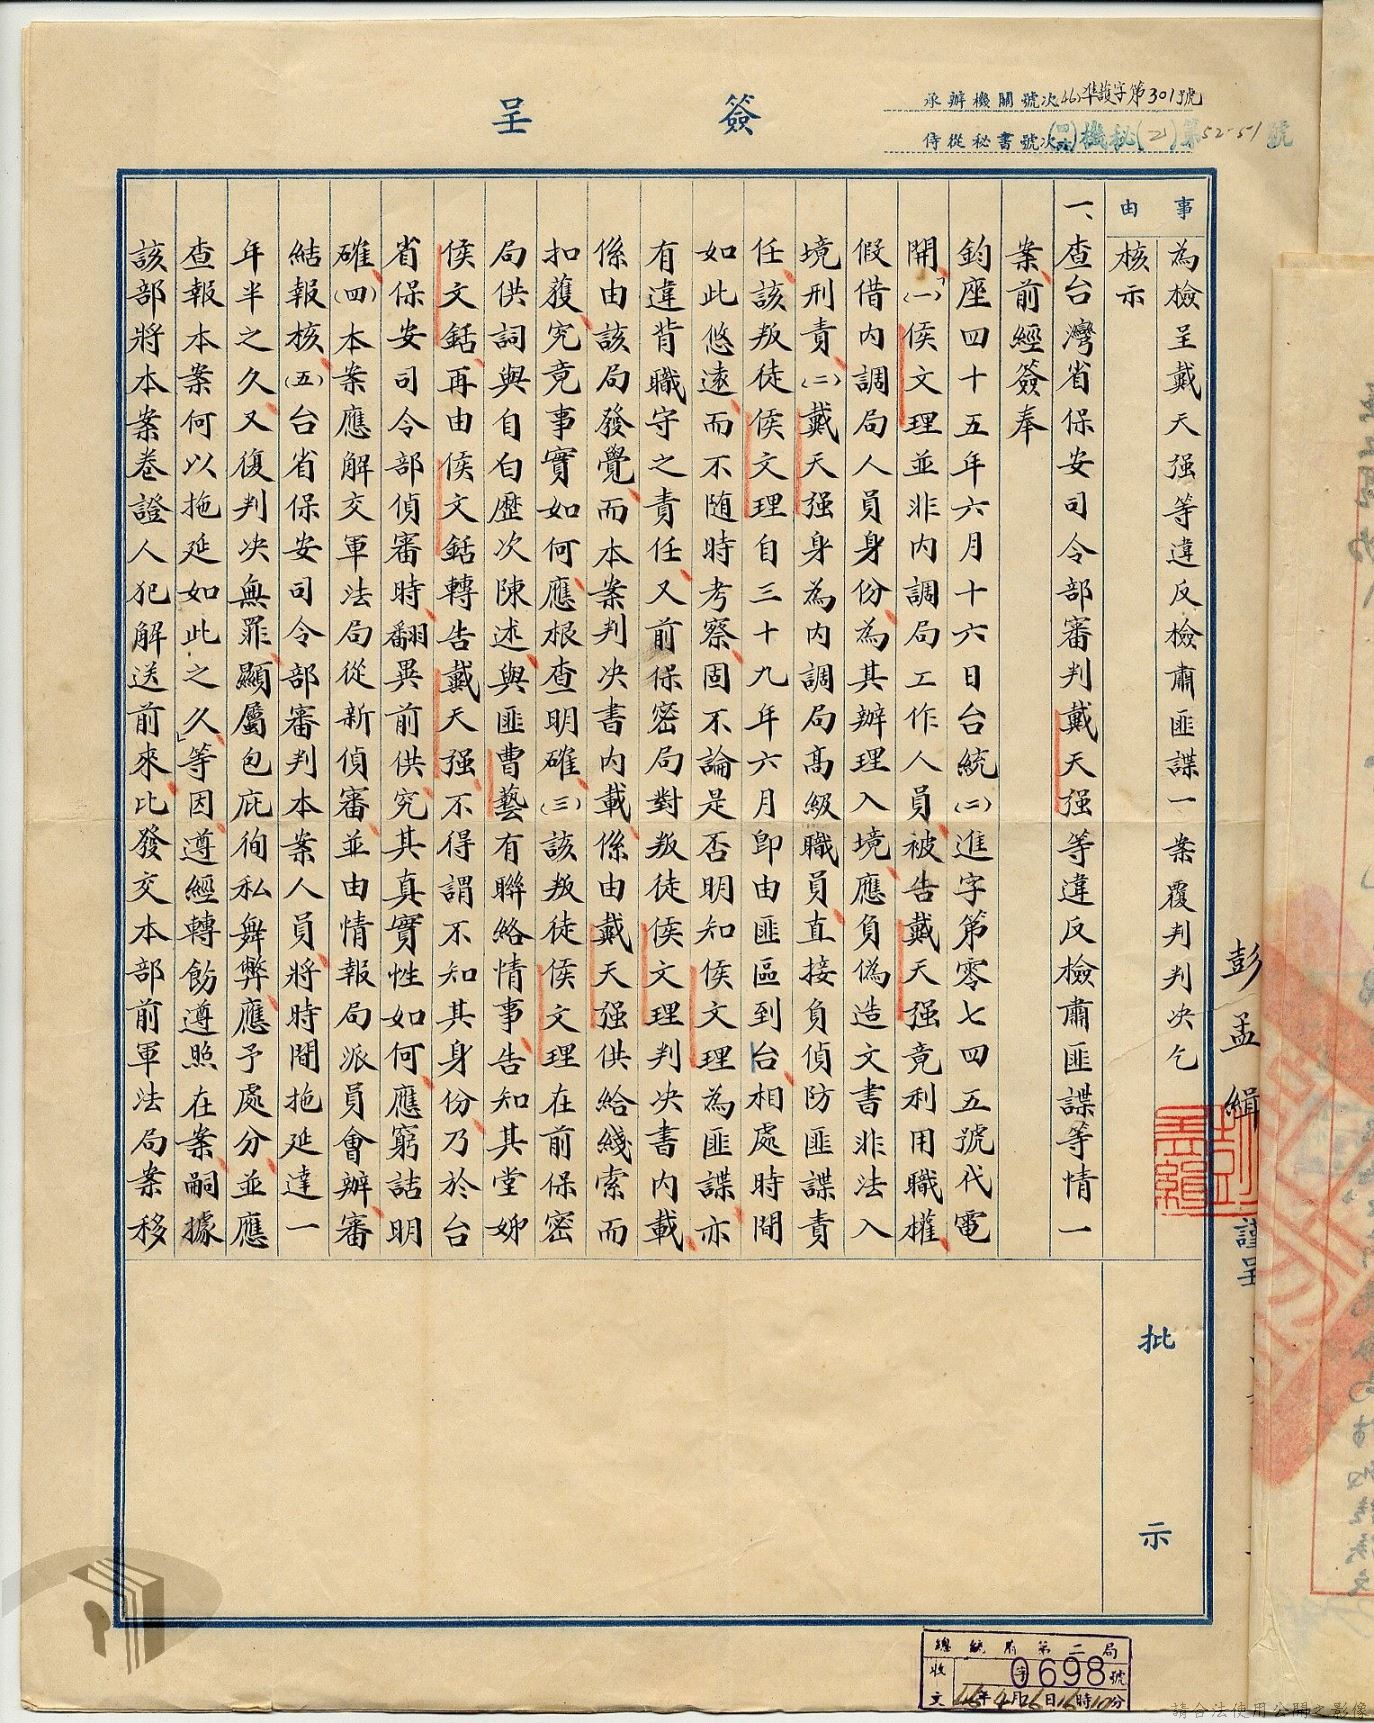 簽呈
承辦機關號次(46)準護字第301號
侍從秘書號次(四六)機秘(乙)第52-51號
事由
為檢呈戴天强等違反檢肅匪諜一案覆判判决乞
核示
一、查台灣省保安司令部審判戴天强等違反檢肅匪諜等情一
案、前經簽奉
鈞座四十五年六月十六日台統(二)進字第零七四五號代電
開「(一)侯文理並非內調局工作人員、被告戴天强竟利用職權、
假借內調局人員身份、為其辦理入境、應負偽造文書非法入
境刑責、(二)戴天强身為內調局高級職員、直接負偵防匪諜責
任、該叛徒侯文理自三十九年六月即由匪區到台、相處時間
如此悠遠、而不随時考察、固不論是否明知侯文理為匪諜、亦
有違背職守之責任、又前保密局對叛徒侯文理判决書內載、
係由該局發覺、而本案判决書內載、係由戴天强供給綫索而
扣獲、究竟事實如何、應根查明確、(三)該叛徒侯文理在前保密
局供詞與自白歷次陳述、與匪曹藝有聯絡情事、告知其堂姊
侯文銛、再由侯文銛轉告戴天强、不得謂不知其身份、乃於台
省保安司令部偵審時、翻異前供、究其真實性如何、應窮詰明
確、(四)本案應解交軍法局從新偵審、並由情報局派員會辦、審
結報核、(五)台省保安司令部審判本案人員、將時間拖延達一
年半之久、又復判决無罪、顯屬包庇徇私舞弊、應予處分、並應
查報本案何以拖延如此之久」等因、遵經轉飭遵照在案、嗣據
該部將本案卷證人犯解送前來、比發交本部前軍法局案移
批示
彭孟緝
謹呈
總統府第二局
收文
字0698號
46年4月26日16時10分
請合法使用公開之影像